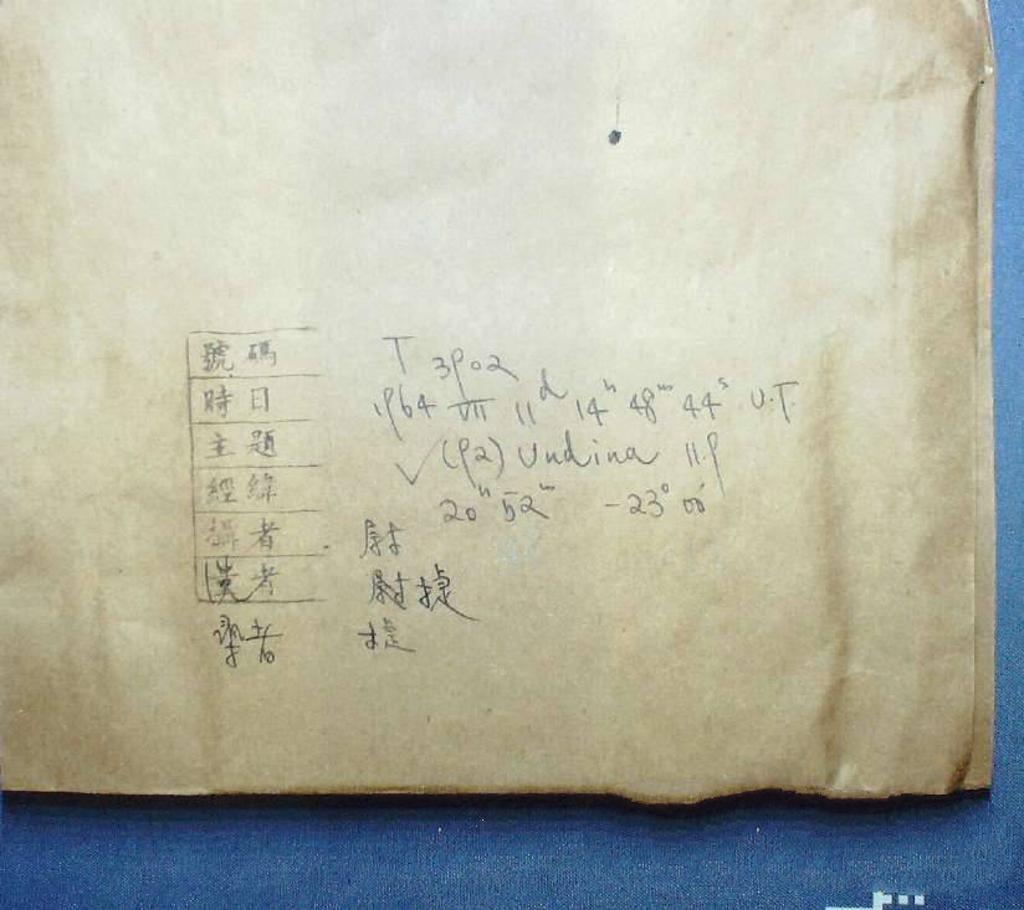 號碼 T 3902
時日 1964 VII 11ᵈ 14ʰ 48ᵐ 44ˢ U.T
主題 ✓ (92) Undina 11.9
經緯 20ʰ 52ᵐ -23° 00'
攝者 尉
者 尉捷
者 捷